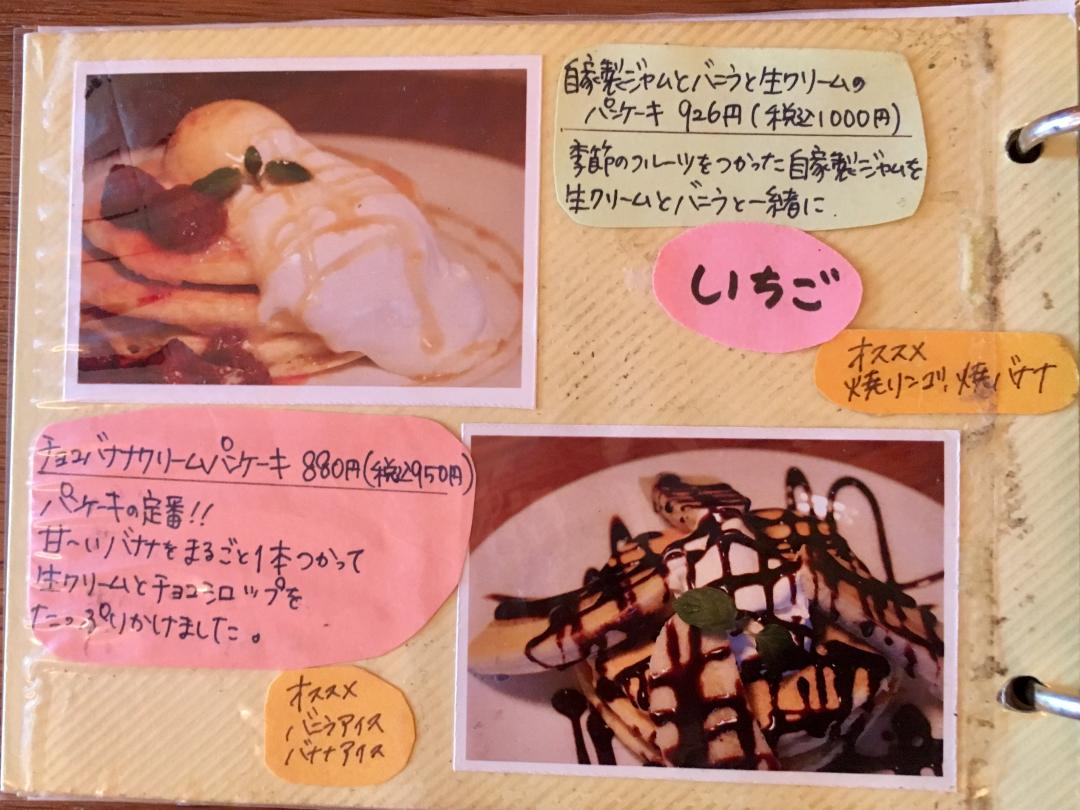 自家製ジャムとバニラと生クリームの
パンケーキ 926円(税込1000円)
季節のフルーツをつかった自家製ジャムを
生クリームとバニラと一緒に
いちご
オススメ
焼リンゴ、焼バナナ
チョコバナナクリームパンケーキ 880円(税込950円)
パンケーキの定番!!
甘〜いバナナをまるごと1本つかって
生クリームとチョコシロップを
たっぷりかけました。
オススメ
バニラアイス
バナナアイス